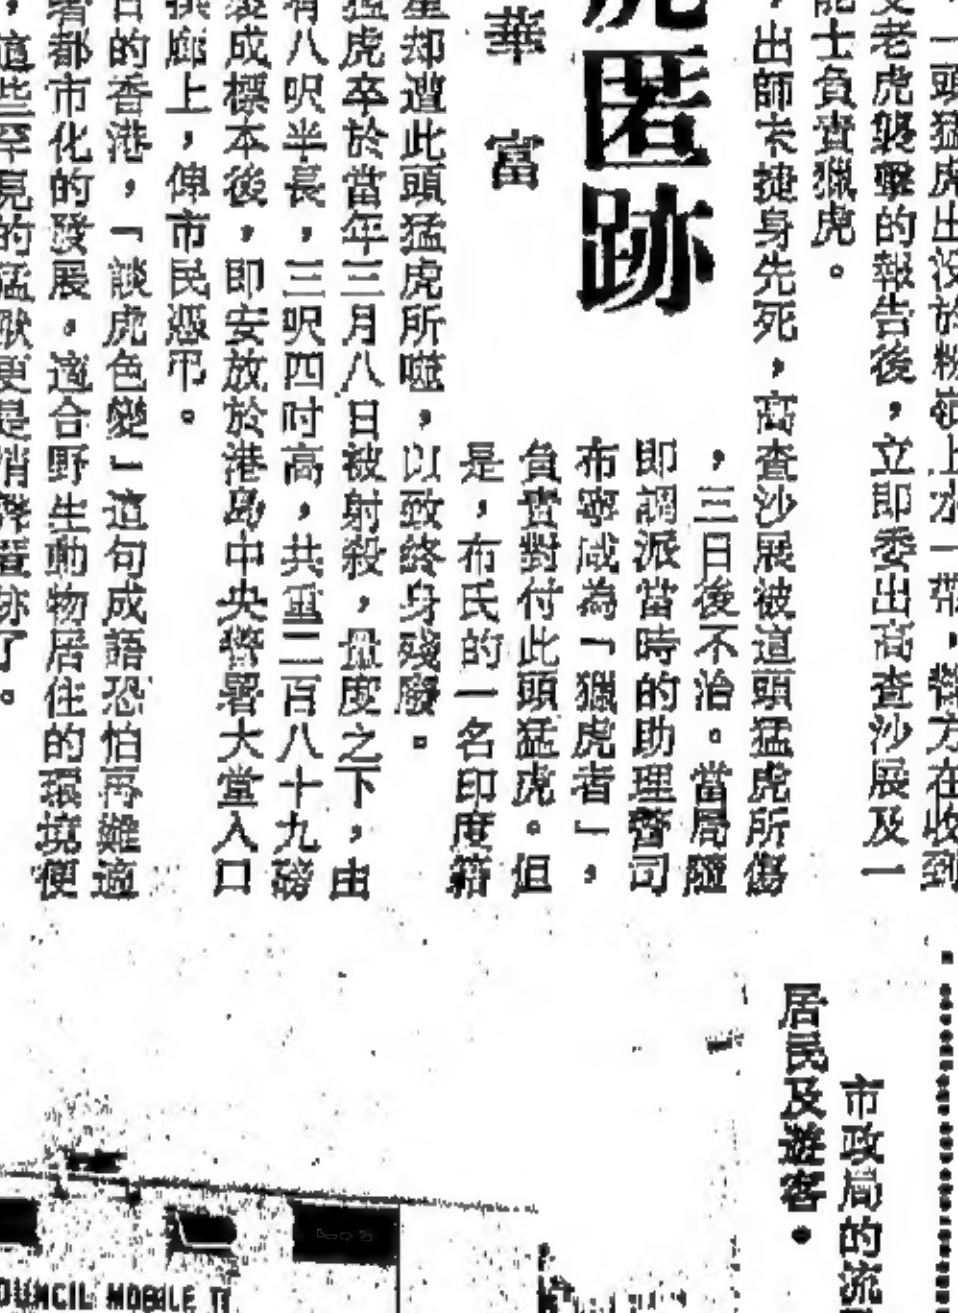 一頭猛虎出沒於粉嶺上水一帶，警方在收到
老虎襲擊的報告後，立即委出高查沙展及一
能士負責獵虎。
，出師未捷身先死，高查沙展被這頭猛虎所傷
，三日後不治。當局隨
即調派當時的助理警司
布寧咸為「獵虎者」，
負責對付此頭猛虎。但
是，布氏的一名印度籍
虎匿跡
華富
却遭此頭猛虎所噬，以致終身殘廢。
猛虎卒於當年三月八日被射殺，量度之下，由
有八呎半長，三呎四吋高，共重二百八十九磅
成標本後，即安放於港島中央警署大堂入口
廊上，俾市民憑弔。
日的香港，「談虎色變」這句成語恐怕再難適
著都市化的發展，適合野生動物居住的環境便
，這些罕見的猛獸更是消聲匿跡了。
市政局的流
居民及遊客。
OUNCIL MOBILE